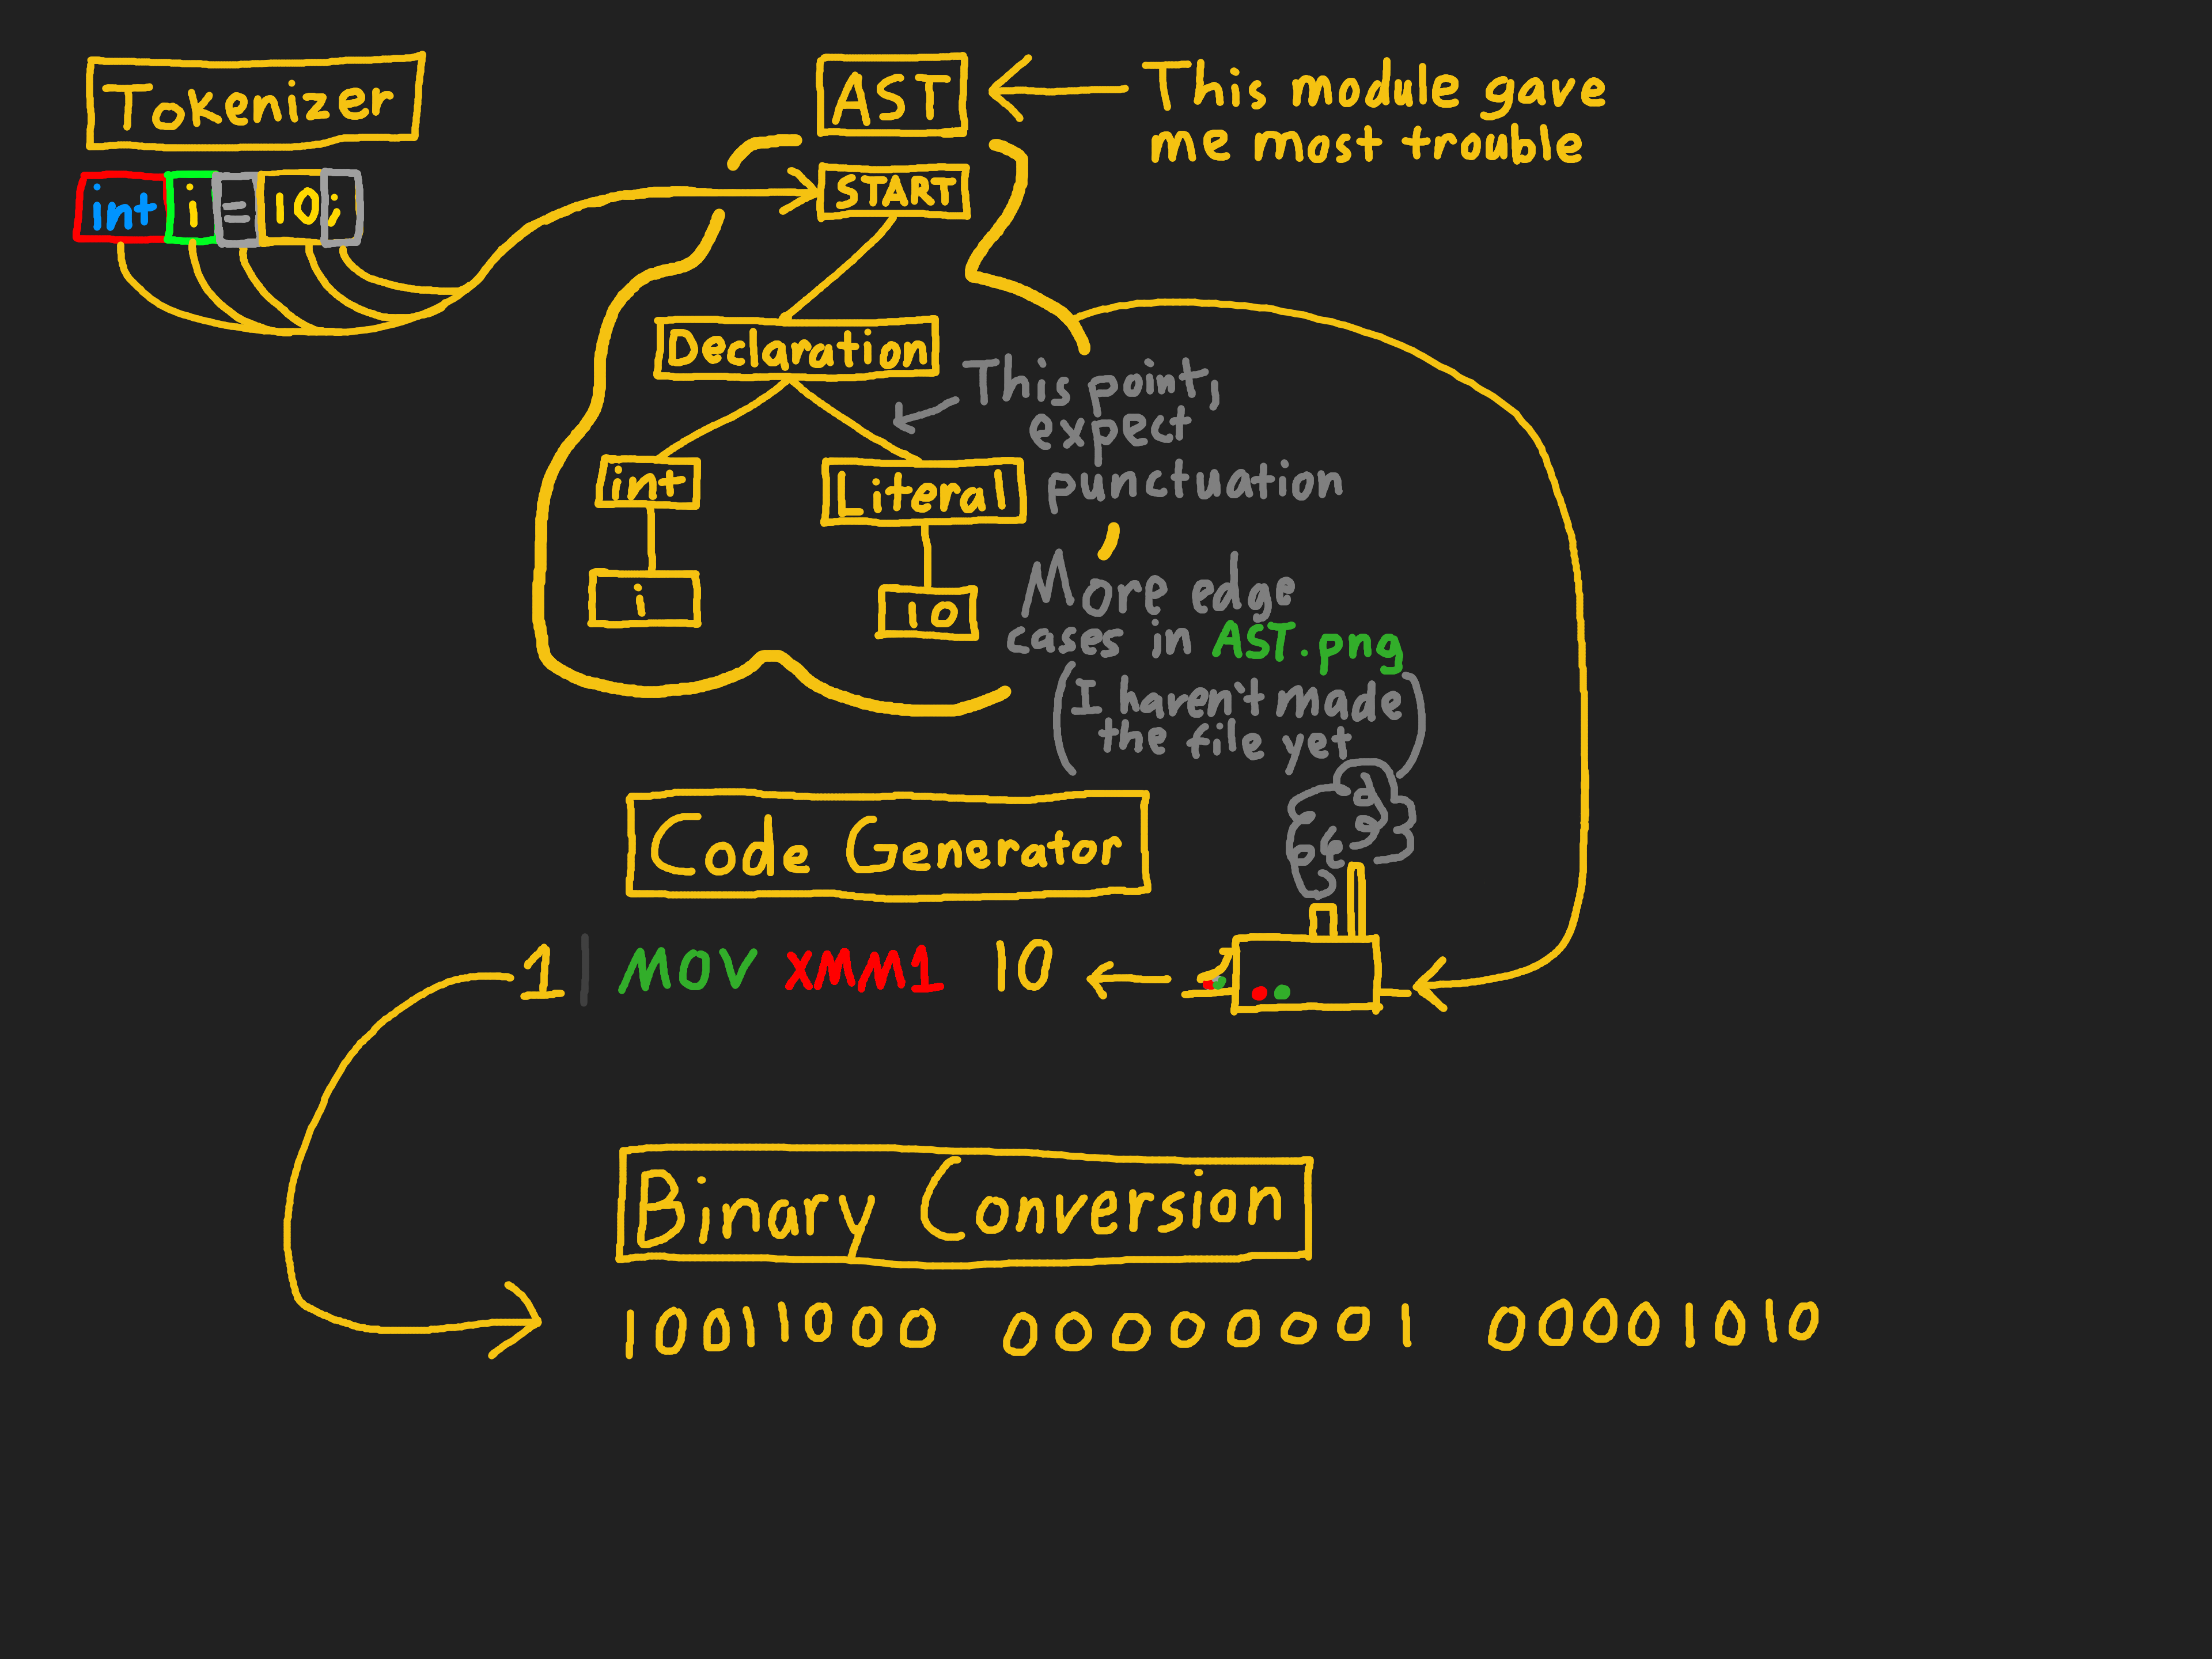 Tokenizer
int i = 10;
AST
This module gave
me most trouble
START
Declaration
This point,
expect
punctuation
int
Literal
i
10
More edge
cases in AST.png
(I haven't made
the file yet)
Code Generator
1| MOV XMM1 10
Binary Conversion
10011000 00000001 00001010